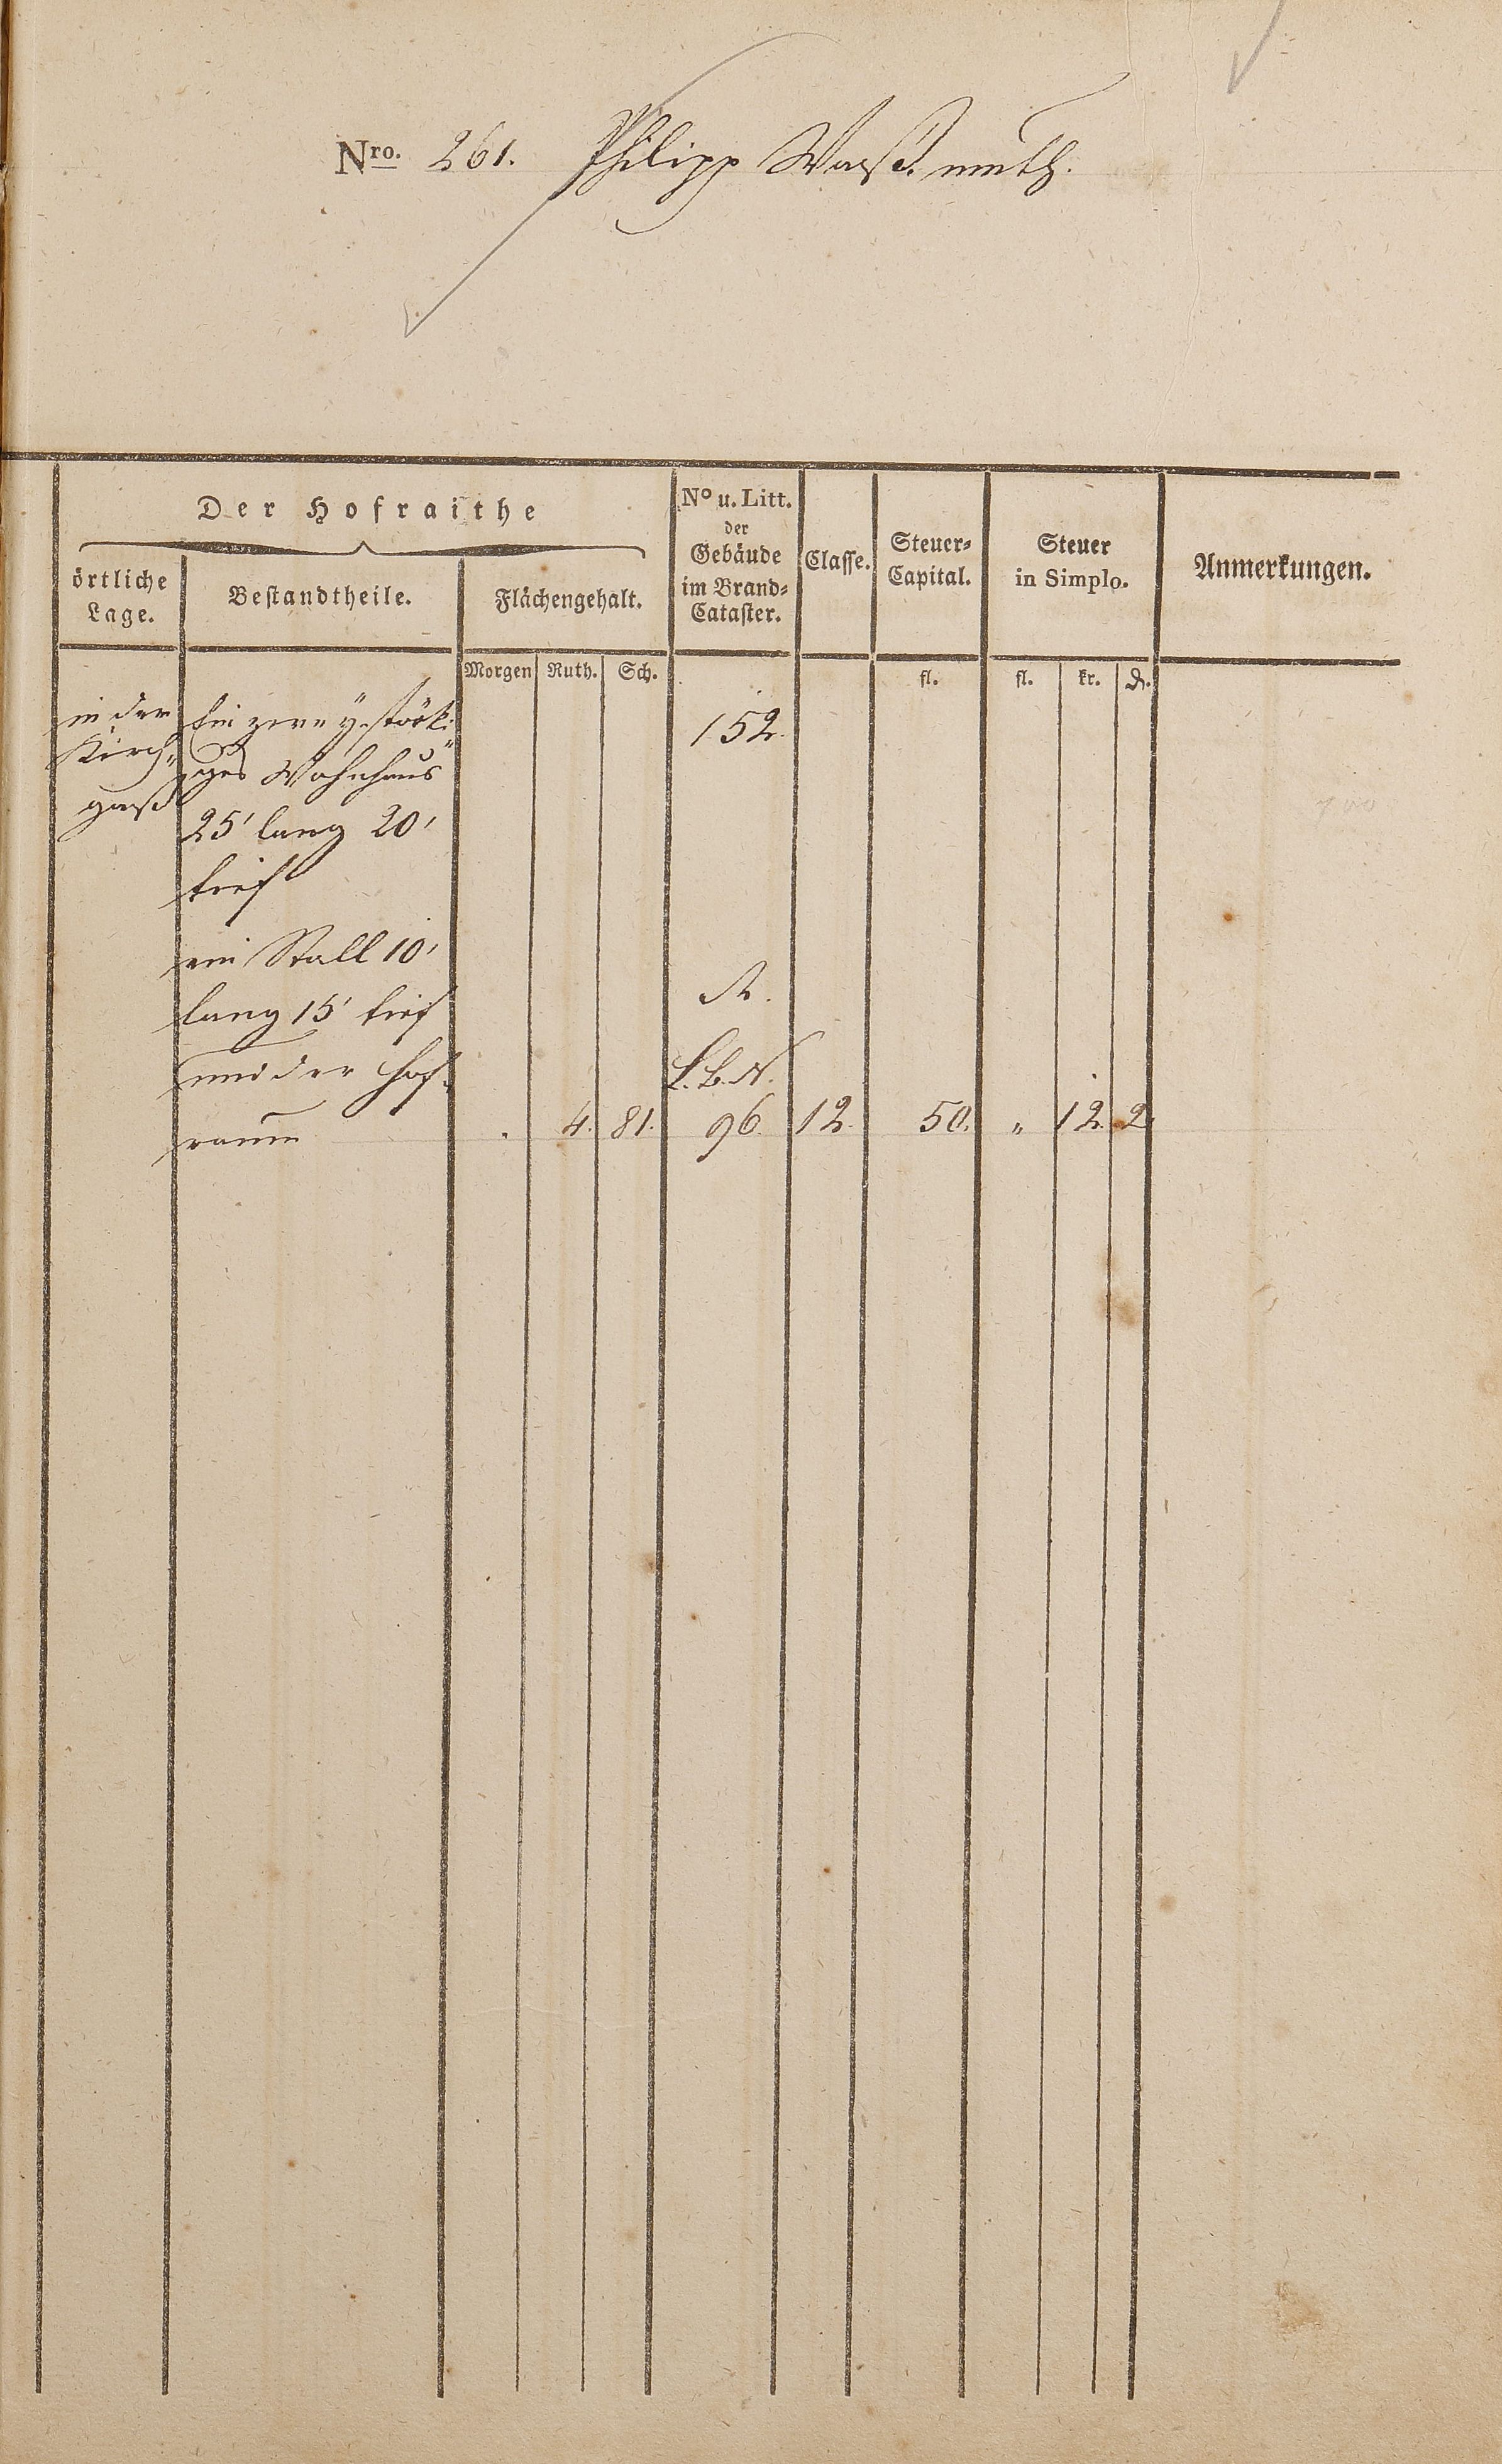 Nro. 261. Philipp Waßmuth.
Der Hofraithe
örtliche Lage.
Bestandtheile.
Flächengehalt.
No u. Litt. der Gebäude im Brand-Cataster.
Classe.
Steuer-Capital.
Steuer in Simplo.
Anmerkungen.
Morgen Ruth. Sch. fl. fl. kr. ₰.
in der Ein zwey stöcki- 152.
Kirch- ges Wohnhaus
gaß 25' lang 20'
tief
ein Stall 10'
lang 15' tief A.
und der Hof- L.B.N.
raum . 4. 81. 96. 12. 50. " 12. 2.